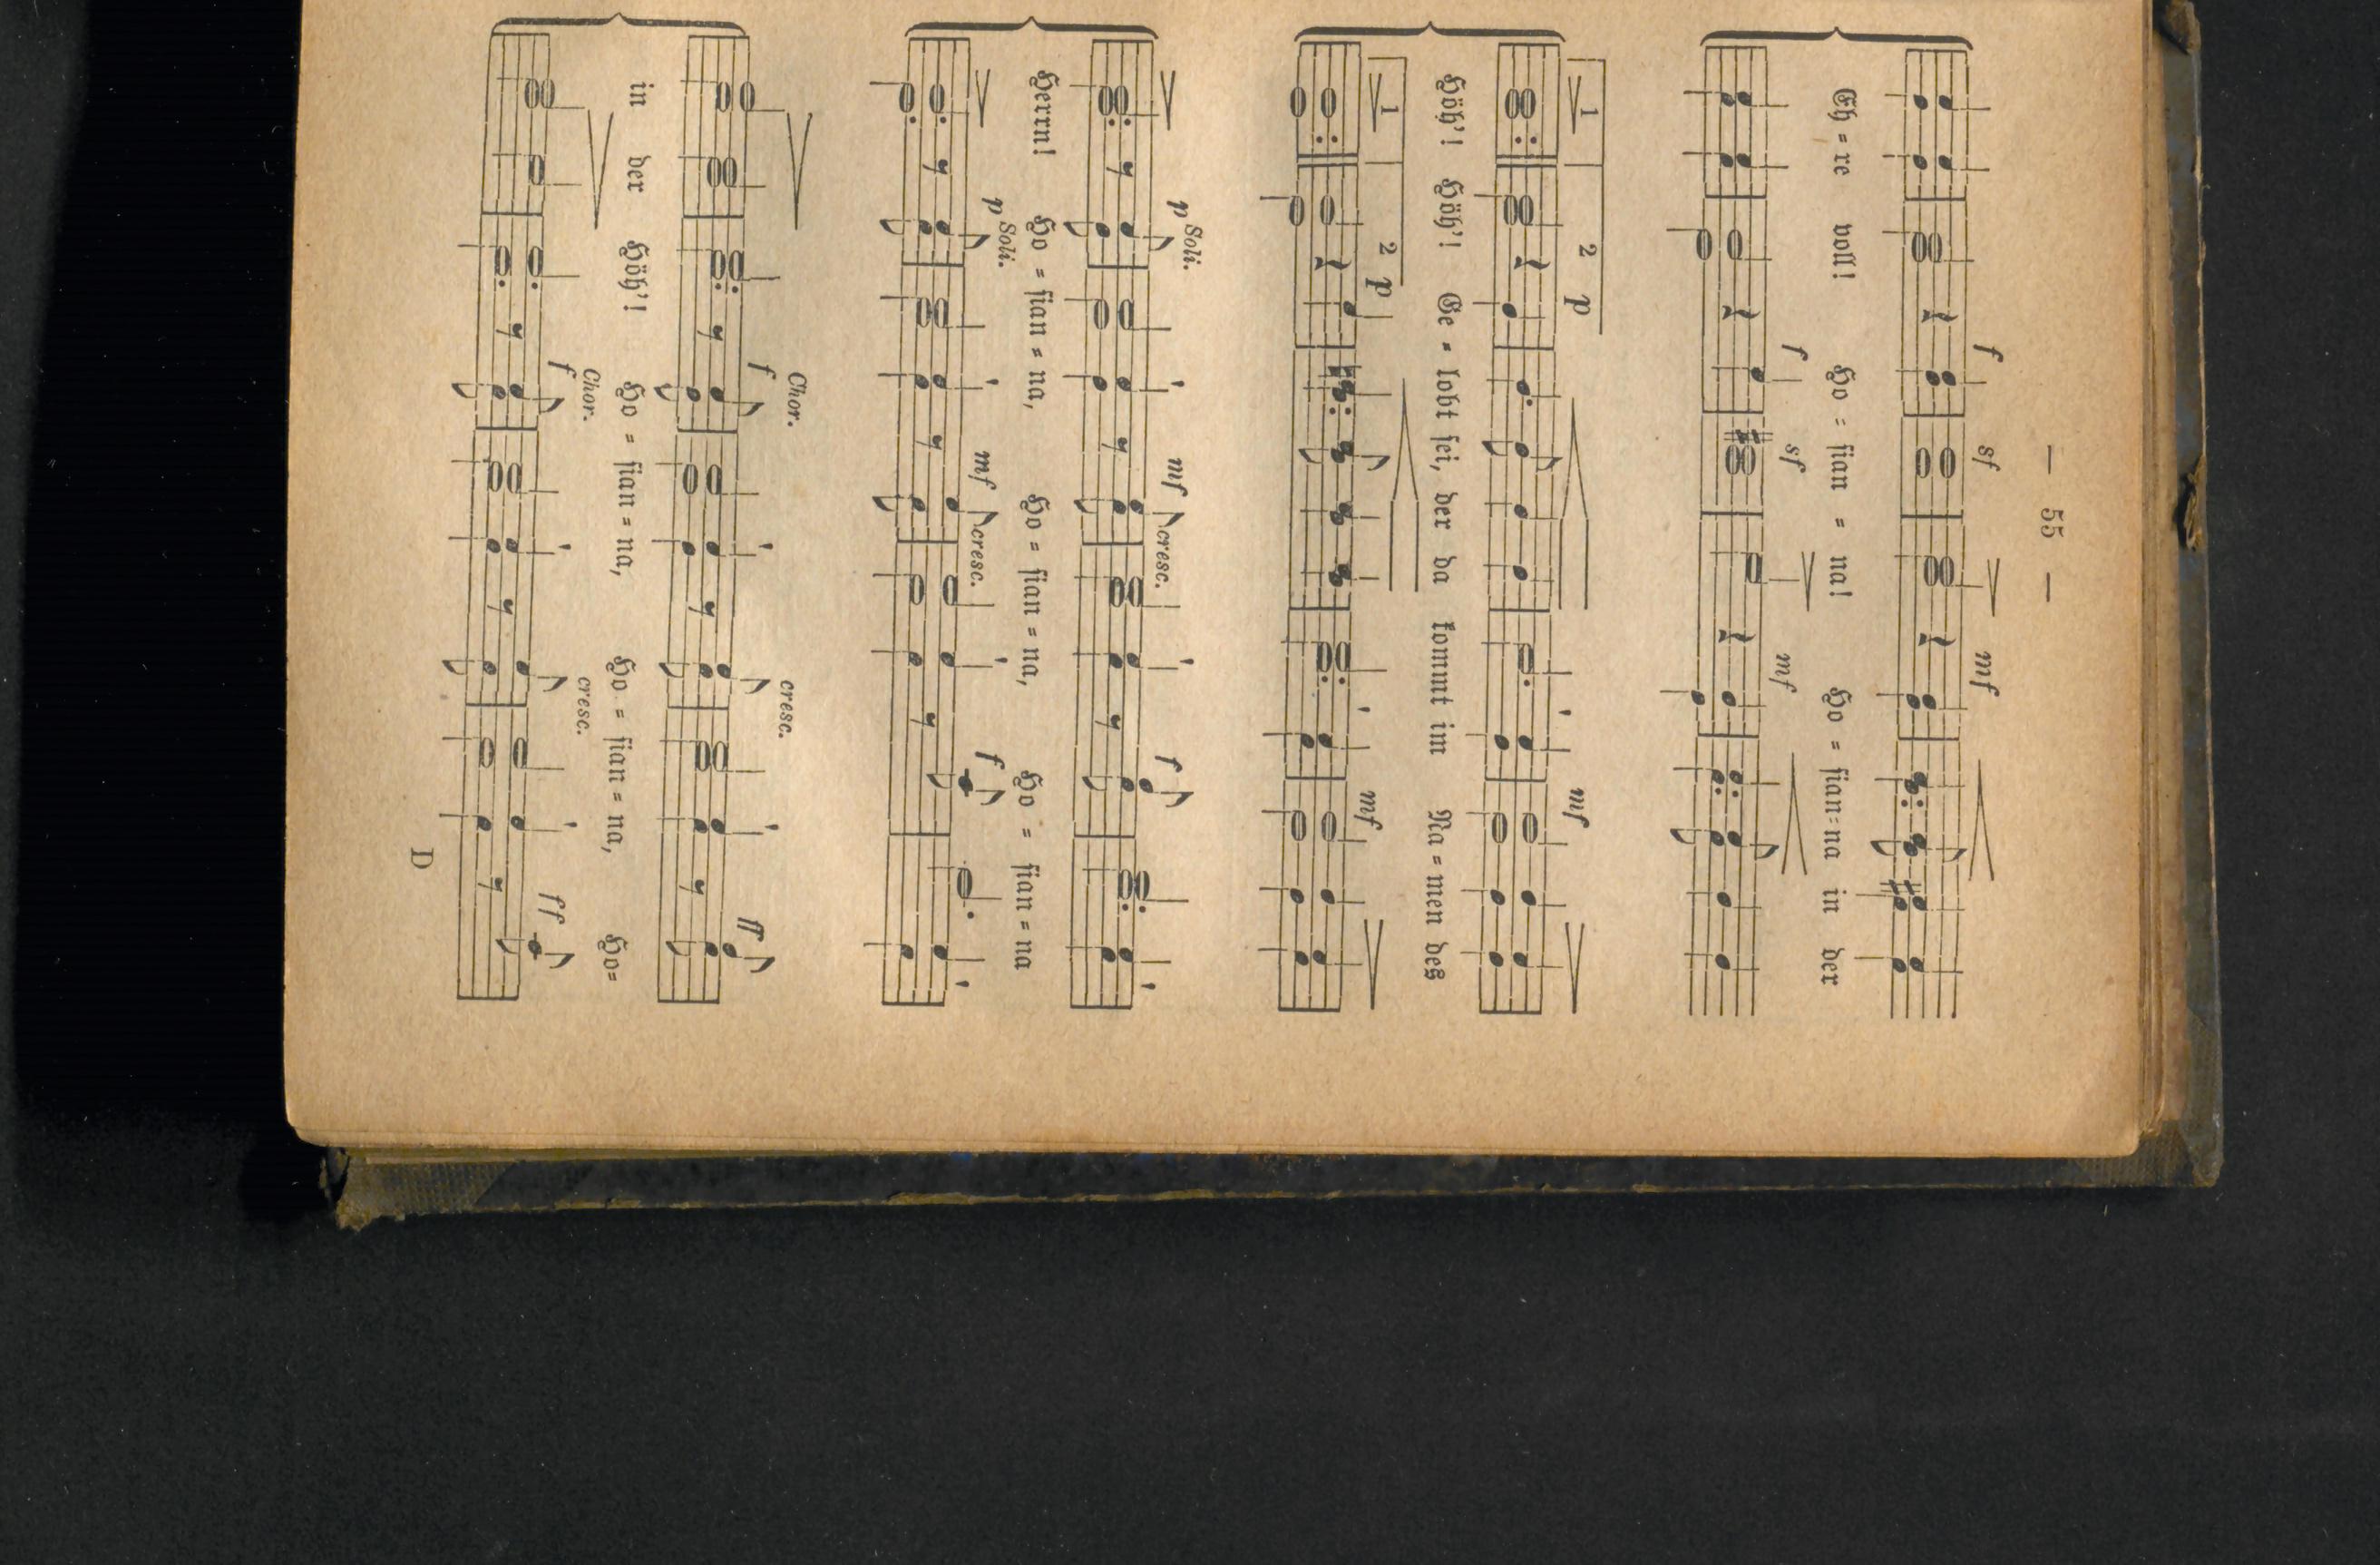 — 55 —
f sf mf
Eh = re voll! Ho = sian = na! Ho = sian=na in der
f sf mf
1 2 p mf
Höh'! Höh'! Ge = lobt sei, der da kommt im Na = men des
1 2 p mf
p Soli. mf cresc. f
Herrn! Ho = sian = na, Ho = sian = na, Ho = sian = na
p Soli. mf cresc. f
Chor.
f cresc. ff
in der Höh'! Ho = sian = na, Ho = sian = na, Ho=
Chor.
f cresc. ff
D